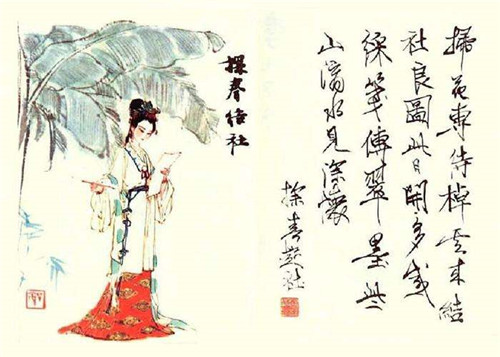 探春結社
掃花專待棹雪來結
社良圖此日開多感
綵箋傳翠墨些
山滴水見深懷
探春結社